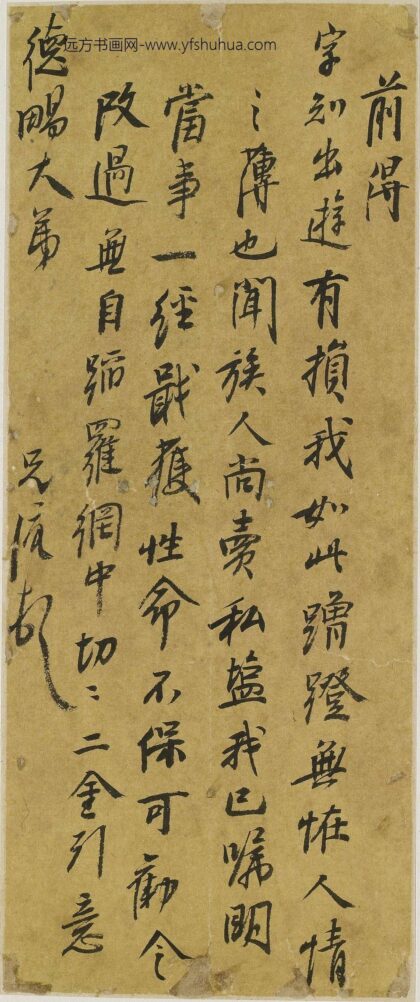 远方书画网-www.yfshuhua.com
前得
字知出遊有損我如此蹭蹬無恠人情
〻薄也聞族人尚賣私塩我已囑明
當事一經戢獲性命不保可勸令
改過無自蹈羅網中切〻二金引意
德暘大弟
兄